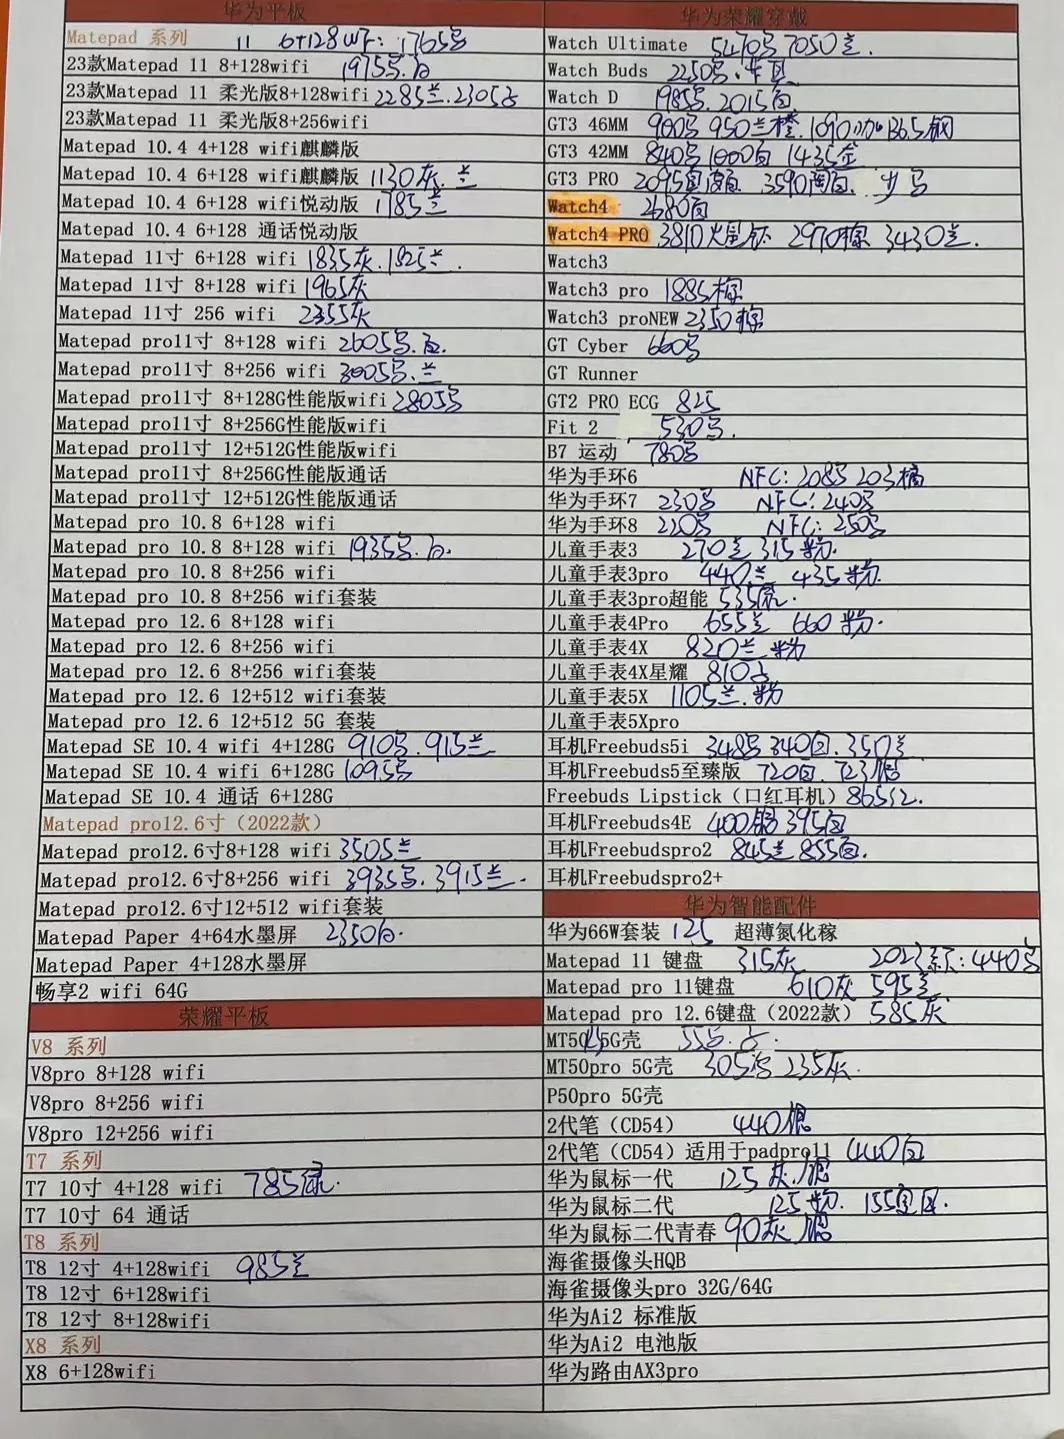 华为平板
Matepad 系列 11 6+128 1765
23款Matepad 11 8+128wifi 1975 白
23款Matepad 11 柔光版8+128wifi 2285兰.2305
23款Matepad 11 柔光版8+256wifi
Matepad 10.4 4+128 wifi麒麟版
Matepad 10.4 6+128 wifi麒麟版 1130灰.兰
Matepad 10.4 6+128 wifi悦动版 1785兰
Matepad 10.4 6+128 通话悦动版
Matepad 11寸 6+128 wifi 1835灰.1825兰.
Matepad 11寸 8+128 wifi 1965灰
Matepad 11寸 256 wifi 2355灰
Matepad pro11寸 8+128 wifi 2605 白.
Matepad pro11寸 8+256 wifi 3005 兰
Matepad pro11寸 8+128G性能版wifi 2805
Matepad pro11寸 8+256G性能版wifi
Matepad pro11寸 12+512G性能版wifi
Matepad pro11寸 8+256G性能版通话
Matepad pro11寸 12+512G性能版通话
Matepad pro 10.8 6+128 wifi
Matepad pro 10.8 8+128 wifi 1935 白.
Matepad pro 10.8 8+256 wifi
Matepad pro 10.8 8+256 wifi套装
Matepad pro 12.6 8+128 wifi
Matepad pro 12.6 8+256 wifi
Matepad pro 12.6 8+256 wifi套装
Matepad pro 12.6 12+512 wifi套装
Matepad pro 12.6 12+512 5G 套装
Matepad SE 10.4 wifi 4+128G 910 915兰
Matepad SE 10.4 wifi 6+128G 1095
Matepad SE 10.4 通话 6+128G
Matepad pro12.6寸（2022款）
Matepad pro12.6寸8+128 wifi 3505兰
Matepad pro12.6寸8+256 wifi 3935 3915兰.
Matepad pro12.6寸12+512 wifi套装
Matepad Paper 4+64水墨屏 2350
Matepad Paper 4+128水墨屏
畅享2 wifi 64G
荣耀平板
V8 系列
V8pro 8+128 wifi
V8pro 8+256 wifi
V8pro 12+256 wifi
T7 系列
T7 10寸 4+128 wifi 785
T7 10寸 64 通话
T8 系列
T8 12寸 4+128wifi 985兰
T8 12寸 6+128wifi
T8 12寸 8+128wifi
X8 系列
X8 6+128wifi
华为荣耀穿戴
Watch Ultimate 5470 7050兰.
Watch Buds 2250
Watch D 1985 2015
GT3 46MM 900 950兰橙 1090 钢
GT3 42MM 840 1000白 1435金
GT3 PRO 2095 3590
Watch4 2680
Watch4 PRO 3810 2970棕 3430兰.
Watch3
Watch3 pro 1885棕
Watch3 proNEW 2350棕
GT Cyber 660
GT Runner
GT2 PRO ECG 825
Fit 2 530
B7 运动 780
华为手环6 NFC: 208 203橘
华为手环7 230 NFC: 240
华为手环8 220 NFC: 250
儿童手表3 270兰 315粉.
儿童手表3pro 440兰 435粉.
儿童手表3pro超能 535
儿童手表4Pro 655兰 660粉.
儿童手表4X 820兰 粉
儿童手表4X星耀 810
儿童手表5X 1105兰.粉
儿童手表5Xpro
耳机Freebuds5i 348 340白.350兰
耳机Freebuds5至臻版 720 723银
Freebuds Lipstick（口红耳机）865红.
耳机Freebuds4E 400银 395白
耳机Freebudspro2 845兰 855白.
耳机Freebudspro2+
华为智能配件
华为66W套装 125 超薄氮化稼
Matepad 11 键盘 315灰 2023款: 440
Matepad pro 11键盘 610灰 595兰
Matepad pro 12.6键盘（2022款） 585灰
MT50 5G壳 55
MT50pro 5G壳 305 235灰.
P50pro 5G壳
2代笔（CD54） 440银
2代笔（CD54）适用于padpro11 440白
华为鼠标一代 125灰.银
华为鼠标二代 125粉. 155
华为鼠标二代青春 90灰 银
海雀摄像头HQB
海雀摄像头pro 32G/64G
华为Ai2 标准版
华为Ai2 电池版
华为路由AX3pro